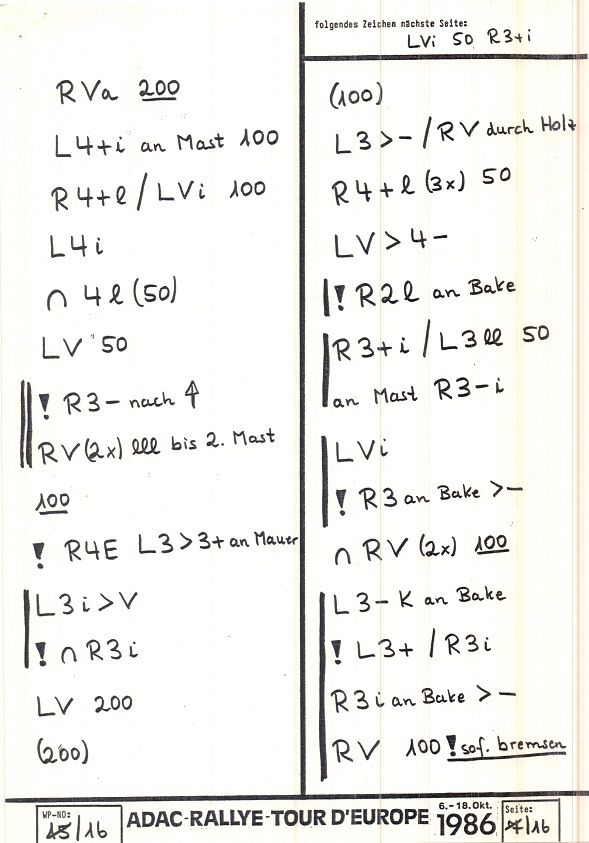 folgendes Zeichen nächste Seite:
LVi 50 R3+i
RVa 200
L4+i an Mast 100
R4+l / LVi 100
L4i
∩ 4l (50)
LV 50
! R3- nach ↑
RV(2x) lll bis 2. Mast
100
! R4E L3>3+ an Mauer
L3i>V
! ∩ R3i
LV 200
(200)
(100)
L3>- / RV durch Holz
R4+l (3x) 50
LV>4-
! R2l an Bake
R3+i / L3ll 50
an Mast R3-i
LVi
! R3 an Bake >-
∩ RV (2x) 100
L3-K an Bake
! L3+ / R3i
R3i an Bake >-
RV 100 ! sof. bremsen
WP-NO:
/16
ADAC-RALLYE-TOUR D'EUROPE
6.-18.Okt.
1986
Seite:
/16